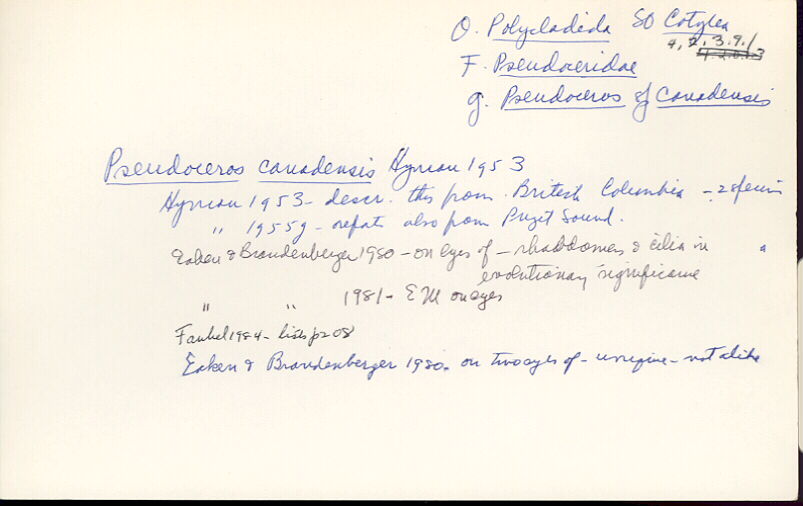 O. Polycladida SO Cotylea
4, 2.3.9.1
F. Pseudoceridae
g. Pseudoceros of Canadensis
Pseudoceros canadensis Hyman 1953
Hyman 1953 - descr. this from British Columbia -
" 1955g - repts also from Puget Sound.
Eaken & Brandenberger 1980 - on eyes of - rhabdomes & cilia in
evolutionary significance
" " 1981 - EM on eyes
Faubel 1984 - lists p208
Eaken & Brandenberger 1980 - on two eyes of - unique - not alike